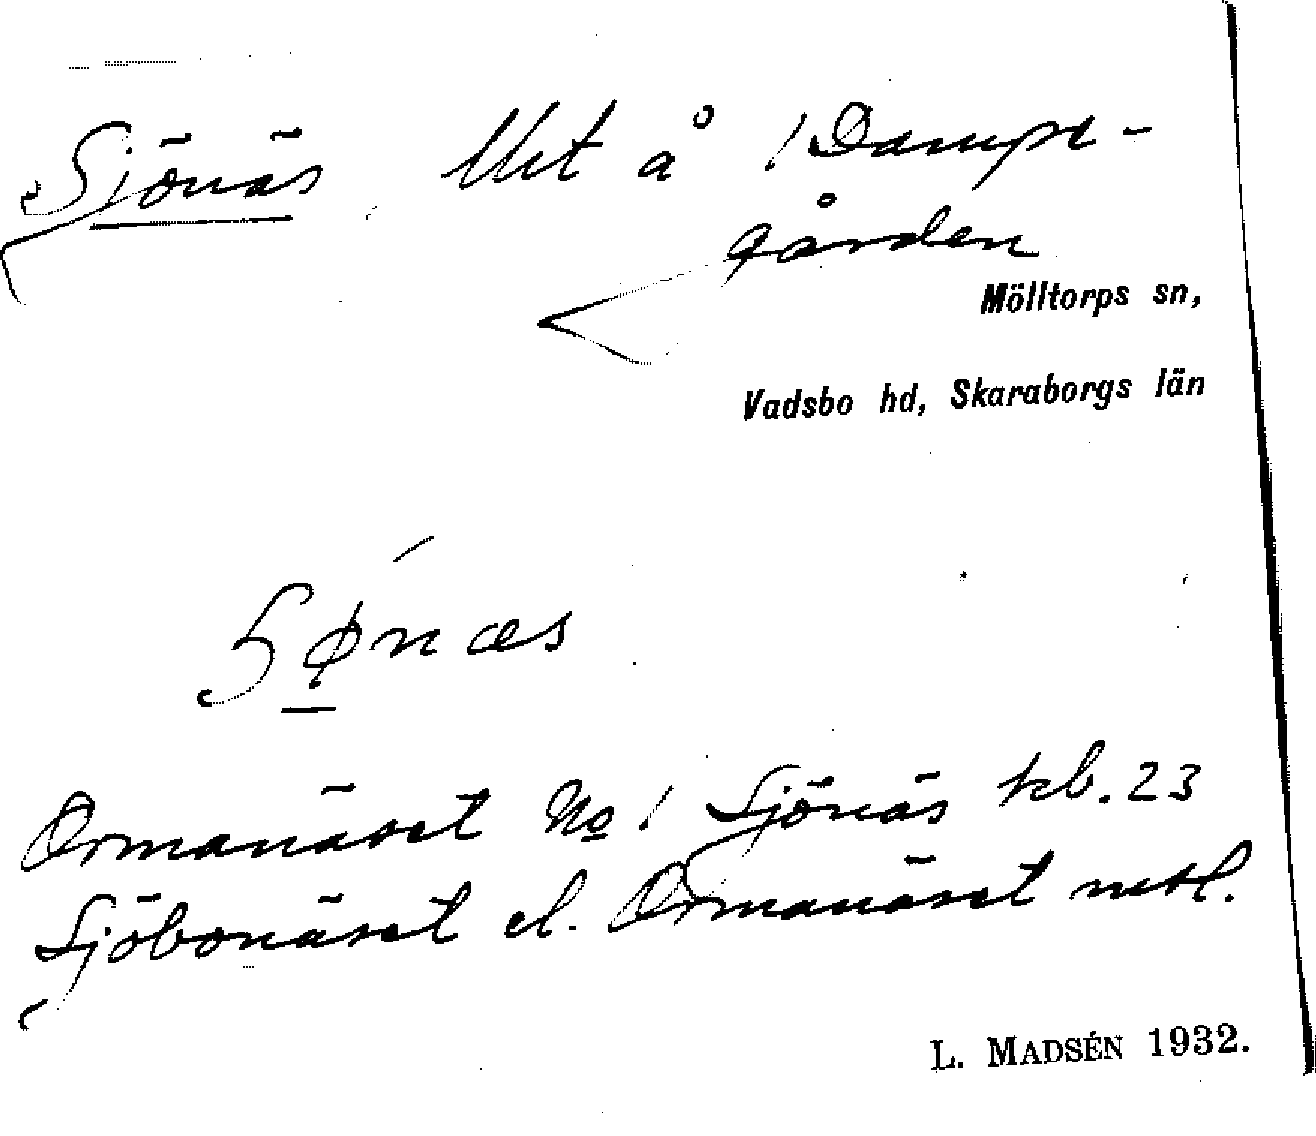 Sjönäs Utt å 1 Damps-
gården
Mölltorps sn,
Vadsbo hd, Skaraborgs län
Ormanäset No 1 Sjönäs kb. 23
Sjöbonäset el. Ormanäset mtl.
L. MADSÉN 1932.